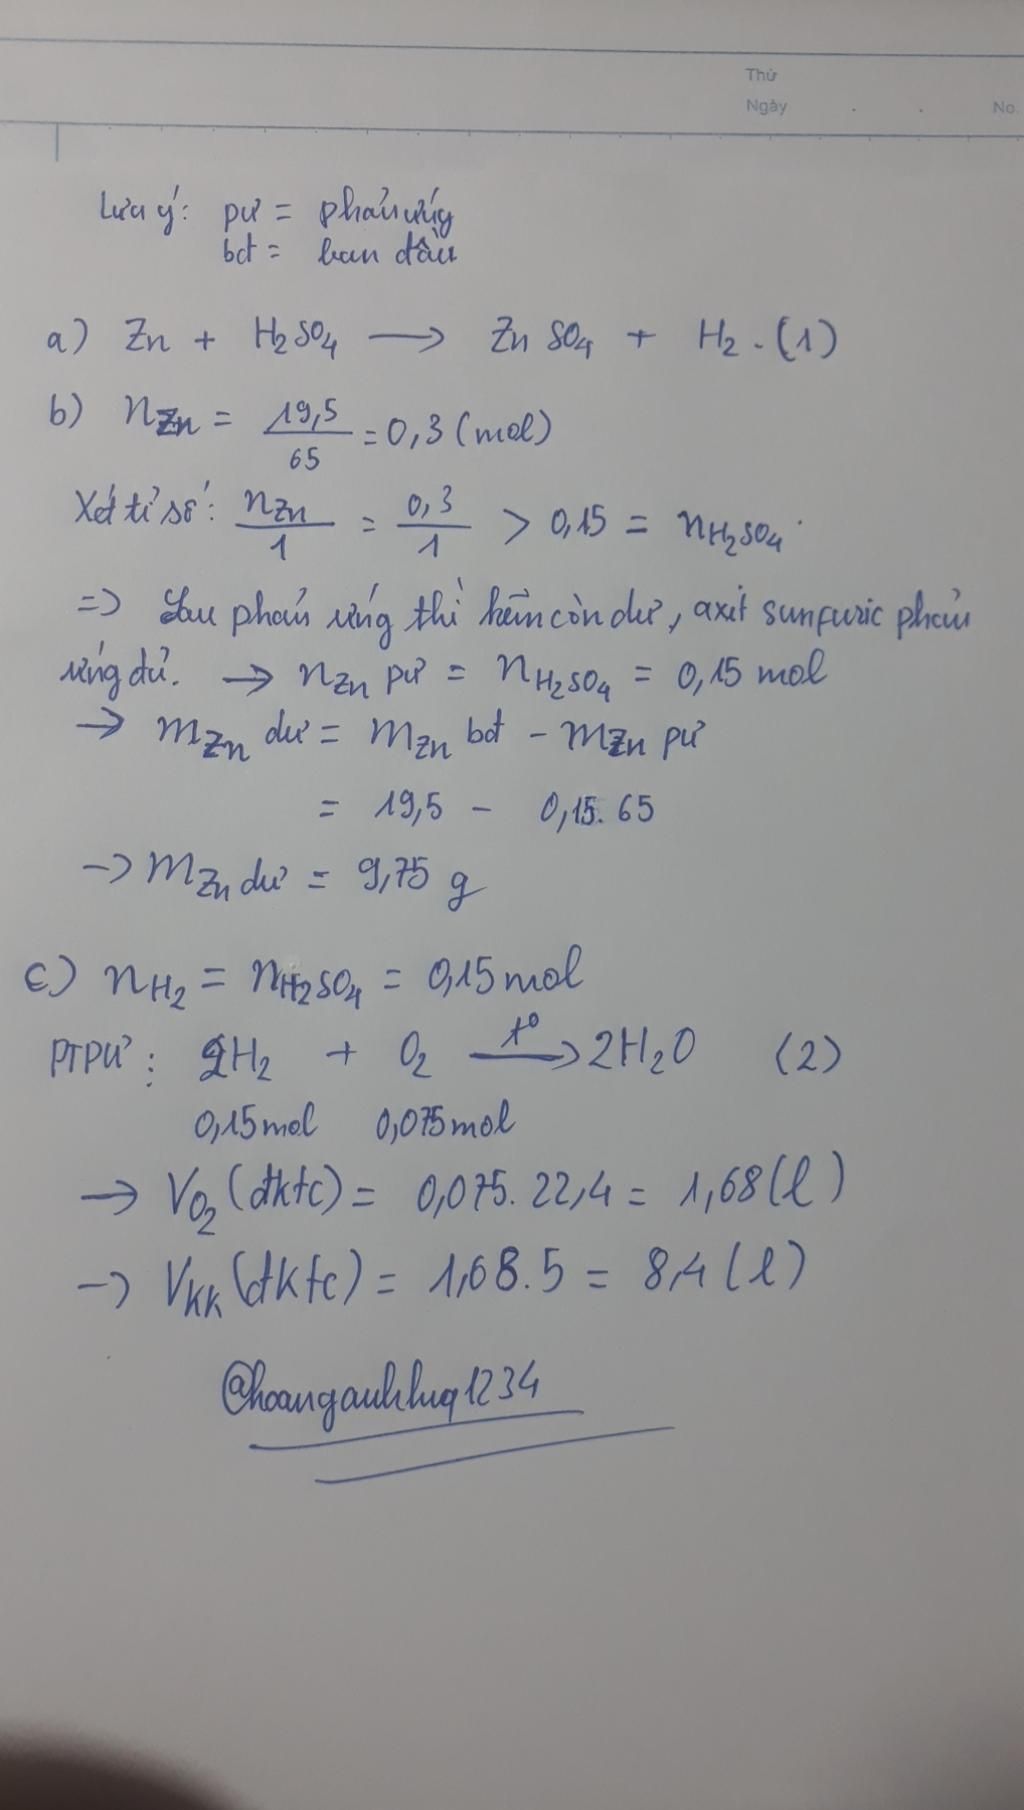 Thứ
Ngày . . No.
Lưu ý: pư = phản ứng
bđ = ban đầu
a) Zn + H₂SO₄ → ZnSO₄ + H₂. (1)
b) nZn = 19,5/65 = 0,3 (mol)
Xét tỉ số: nZn/1 = 0,3/1 > 0,15 = nH₂SO₄.
=> Sau phản ứng thì kẽm còn dư, axit sunfuric phản
ứng đủ. → nZn pư = nH₂SO₄ = 0,15 mol
→ mZn dư = mZn bđ - mZn pư
= 19,5 - 0,15.65
→ mZn dư = 9,75 g
c) nH₂ = nH₂SO₄ = 0,15 mol
PTPƯ: 2H₂ + O₂ →(t⁰) 2H₂O (2)
0,15 mol 0,075 mol
→ VO₂ (đktc) = 0,075. 22,4 = 1,68 (l)
→ VKK (đktc) = 1,68.5 = 8,4 (l)